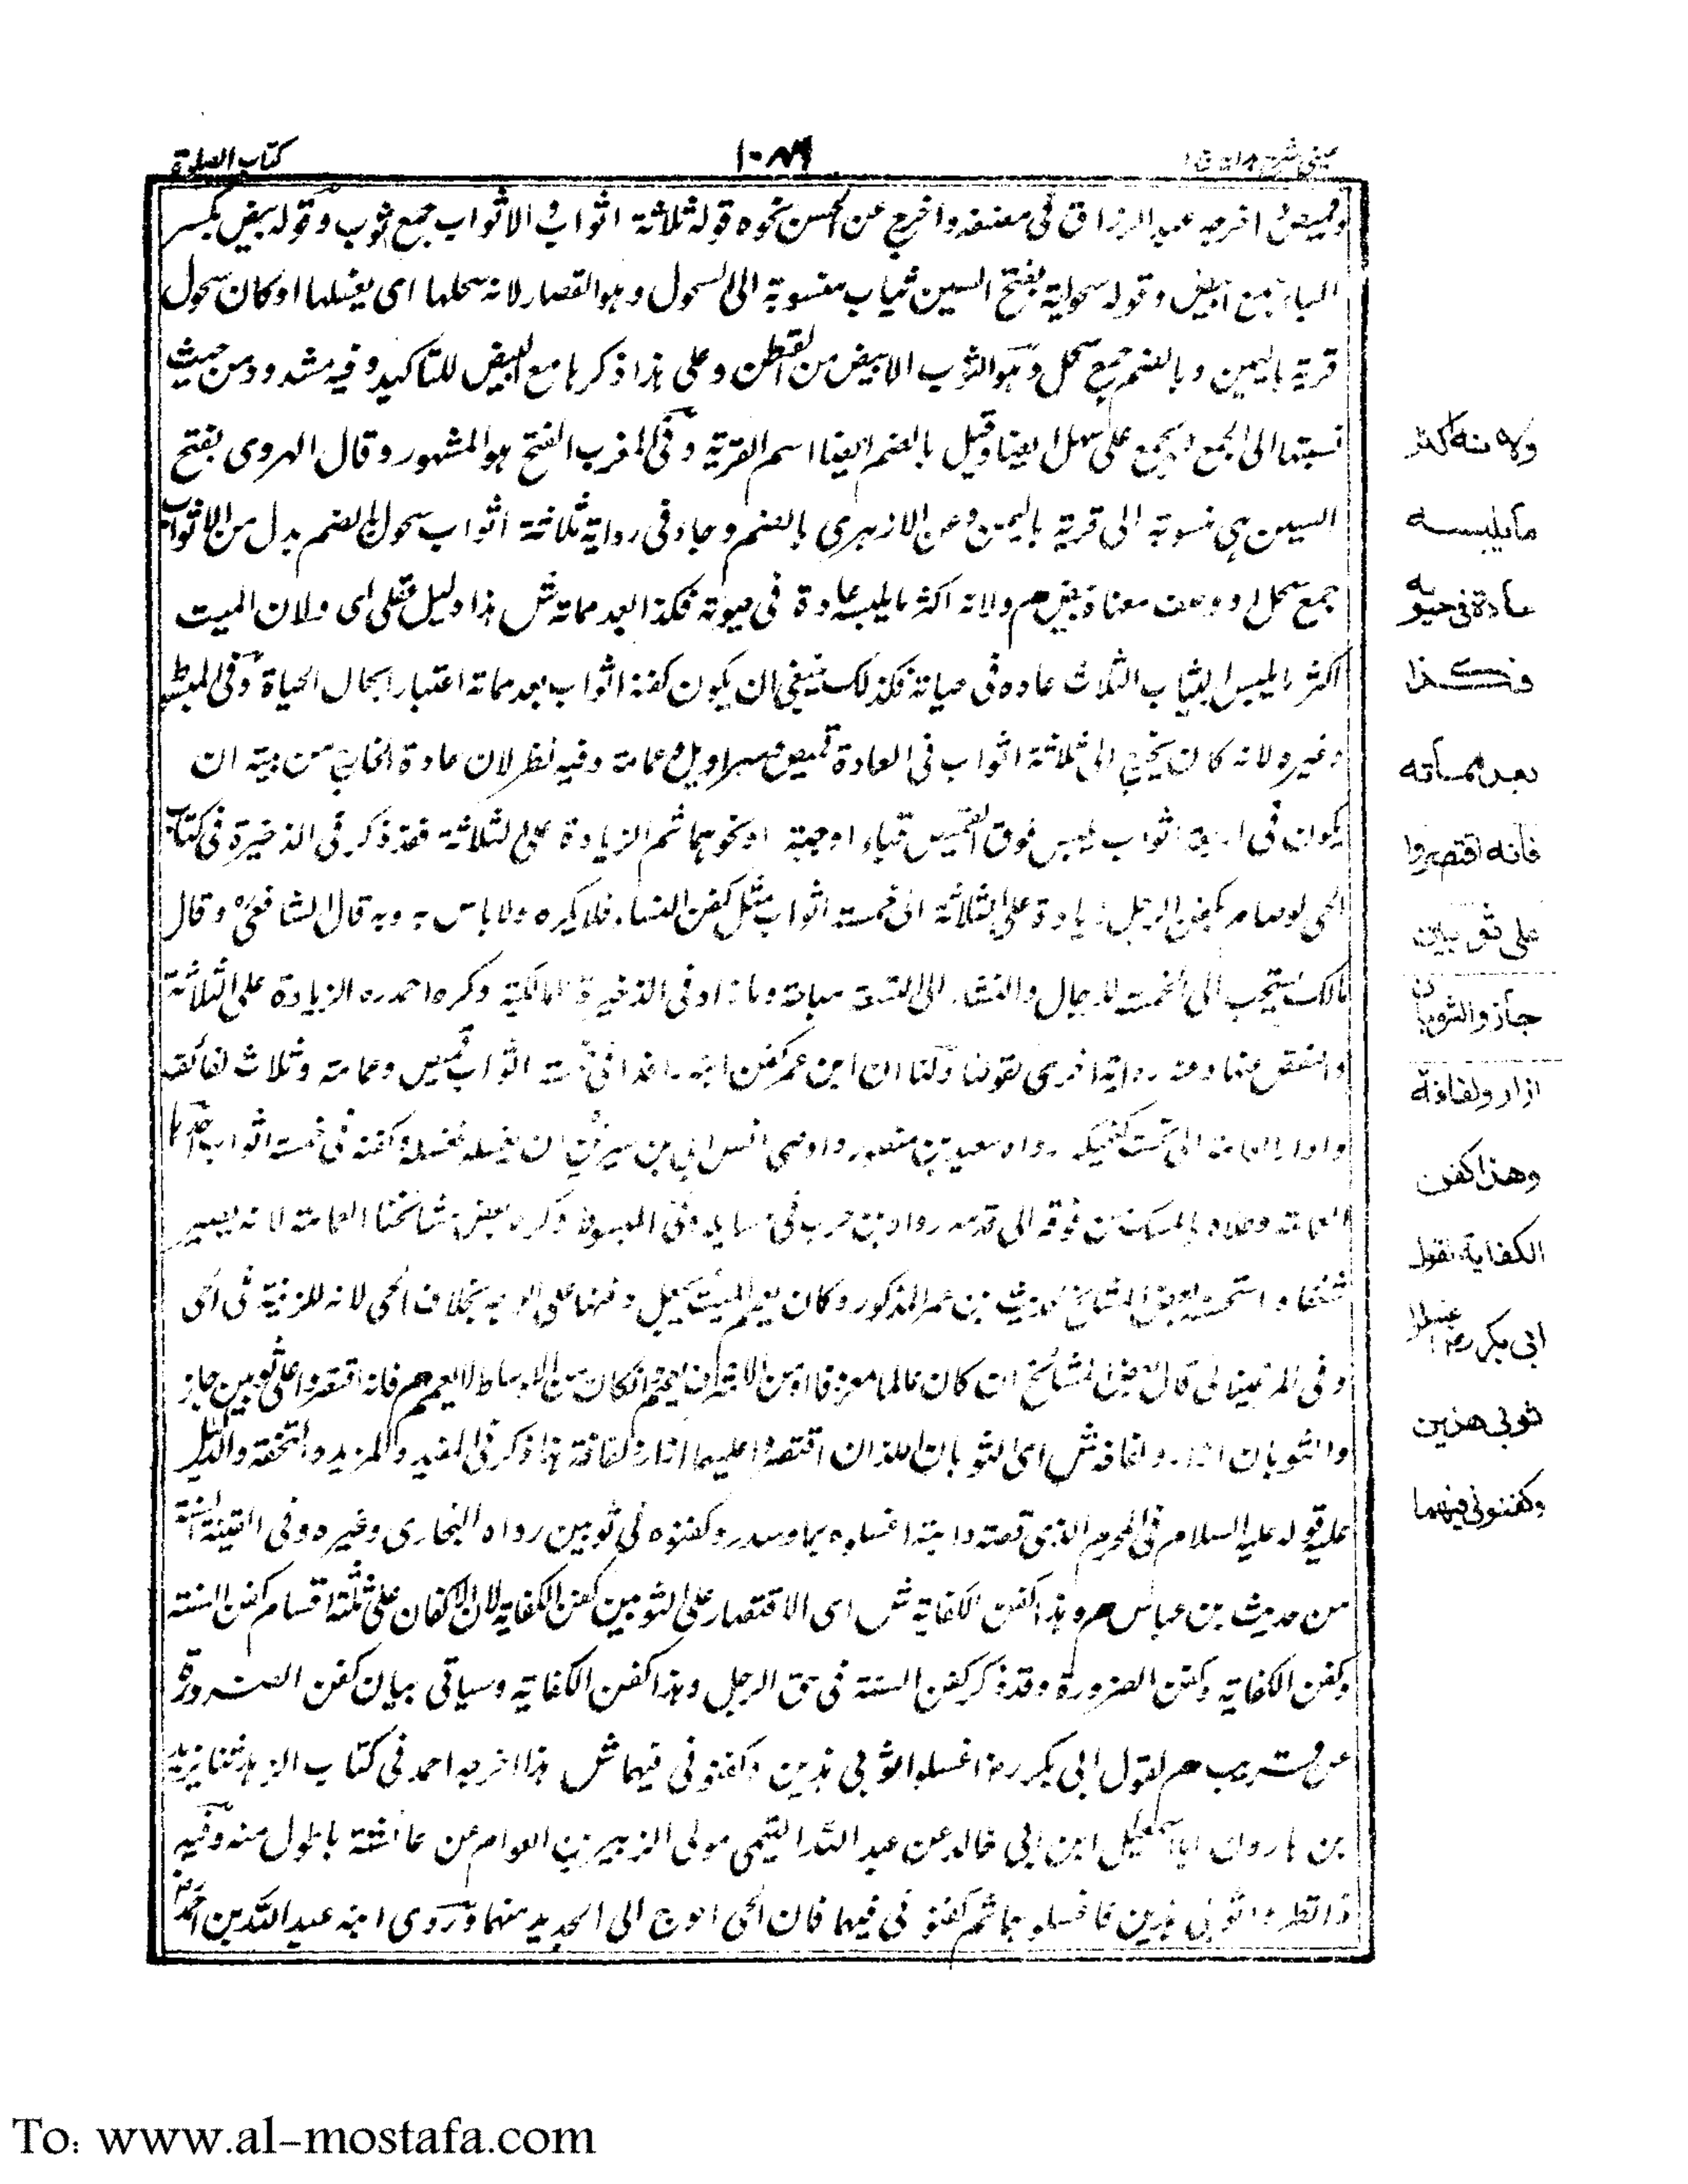 كتاب الصلوة
وقميص اخرجه عبد الرزاق فى مصنفه واخرج عن الحسن نحوه قوله ثلاثة اثواب والاثواب جمع ثوب وقوله بيض بكسر
الباء جمع ابيض وقوله سحولية بفتح السين ثياب منسوبة الى السحول وهو القصار لانه سحلها اى يغسلها او كان سحول
قرية باليمين وبالضم جمع سحل وهو الثوب الابيض من القطن وعلى هذا ذكرها مع البيض للتاكيد وفيه شذوذ من حيث
نسبتها الى الجمع على سحل ايضا وقيل بالضم ايضا اسم القرية وفى المغرب الفتح هو المشهور وقال الهروى بفتح
السين هى منسوبة الى قرية باليمن وعن الازهرى بالضم وجاء فى رواية ثلاثة اثواب سحول بالضم بدل من الاثواب
جمع سحل او وصف معناه بيض م ولانه اكثر ما يلبسه عادة فى حيوته فكذا بعد مماته ش هذا دليل عقلى اى ولان الميت
اكثر ما يلبس الثياب الثلاث عاده فى حياته فكذلك ينبغى ان يكون كفنه اثواب بعد مماته اعتبارا بحال الحياة وفى المبسوط
وغيره ولانه كان يخرج الى ثلاثة اثواب فى العادة قميص وسراويل وعمامة وفيه نظر لان عادة الخارج من بيته ان
يكون فى اربعة اثواب يلبس فوق القميص قباء او جبة او نحوهما ثم الزيادة على الثلاثة فقد ذكر فى الذخيرة فى كتاب
الحى لوصام كفن الرجل زيادة على الثلاثة الى خمسة اثواب مثل كفن النساء فلا يكره ولا باس به وبه قال الشافعى وقال
مالك يستحب الى الخمسة للرجال والنساء الى السبعة مباحة وما زاد فى الذخيرة المالكية وكره احمد ره الزيادة على الثلاثة
والنقص عنها وعنه رواية اخرى كقولنا ولنا ان ابن عمر كفن ابنه واقدا فى خمسة اثواب قميص وعمامة وثلاث لفائف
وادار العمامة الى تحت حنكيه رواه سعيد بن منصور واوصى انس الى بن سيرين ان يغسله فغسله وكفنه فى خمسة اثواب احدها
العمامة وطلاه بالمسك من فوقه الى قدمه رواه بن حرب فى مسايله وفى المبسوط وكره بعض مشائخنا العمامة لانه يصير
شفعا واستحسنه بعض المشايخ لحديث بن عمر المذكور وكان يعمم الميت ويجعل ذنبها على الوجه بخلاف الحى لانه للزينة فى الحى
وفى المرغينانى قال بعض المشائخ ان كان عالما معروفا او من الاشراف يعمم وان كان من الاوساط لا يعمم م فانه اقتصروا على ثوبين جاز
والثوبان ازار ولفافة ش اى الثوبان اللذان اقتصروا عليهما ازار ولفافة هذا ذكر فى المفيد والمزيد والتحفة والدليل
عليه قوله عليه السلام فى المحرم الذى وقصته دابته اغسلوه بماء وسدر وكفنوه فى ثوبين رواه البخارى وغيره وفى
من حديث بن عباس م وهذا كفن الكفاية ش اى الاقتصار على الثوبين كفن الكفاية لان الاكفان على ثلثة اقسام كفن السنة
وكفن الكفاية وكفن الضرورة وقد ذكر كفن السنة فى حق الرجل وهذا كفن الكفاية وسياتى بيان كفن الضرورة
عن قريب م لقول ابى بكر رض اغسلوا ثوبى هذين وكفنونى فيهما ش هذا اخرجه احمد فى كتاب الزهد ثنا يزيد
بن هارون انا اسمعيل ابن ابى خالد عن عبد الله التيمى مولى الزبير بن العوام عن عائشة باطول منه وفيه
انظروا ثوبى هذين فاغسلوهما ثم كفنونى فيهما فان الحى احوج الى الجديد منهما وروى ابنه عبد الله بن احمد
ولانه اكثر
مايلبسه
عادة فى حيوته
فكذا
بعد مماته
فانه اقتصروا
على ثوبين
جاز والثوبان
ازار ولفافة
وهذا كفن
الكفاية لقول
ابى بكر رض اغسلوا
ثوبى هذين
وكفنونى فيهما
To: www.al-mostafa.com